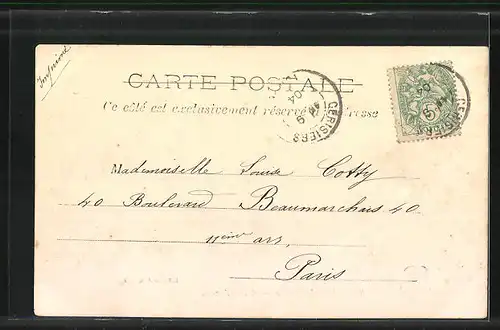 Imprimé
CARTE POSTALE
Ce côté est exclusivement réservé à l'adresse
CERISIERS
CERISIERS
Mademoiselle Louise Cotty
40 Boulevard Beaumarchais 40
11eme arr,
Paris